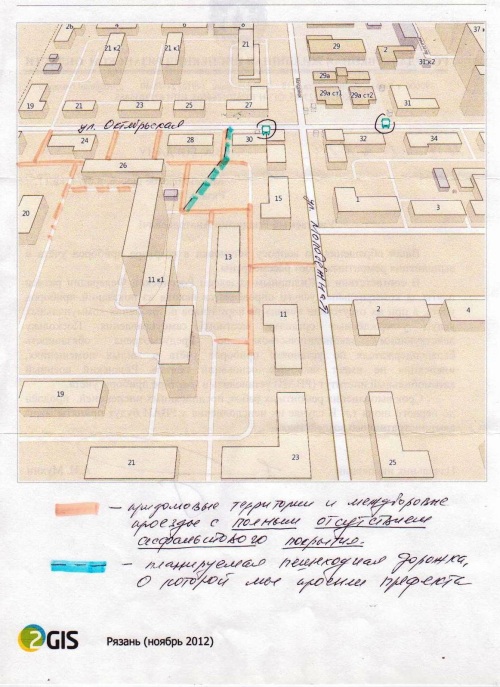 26
4
6
8
21
37 к
21 к2
21 к1
29
2
31 к2
29а
29а ст1
29а ст2
31
19
21
23
25
27
ул. Октябрьская
24
28
30
32
34
26
20
15
1
3
ул. Молодёжная
13
11 к1
11
2
4
19
21
23
25
- придомовые территории и междворовые
проезды с полным отсутствием
асфальтового покрытия.
- планируемая пешеходная дорожка,
о которой мы просили префекта
2GIS Рязань (ноябрь 2012)